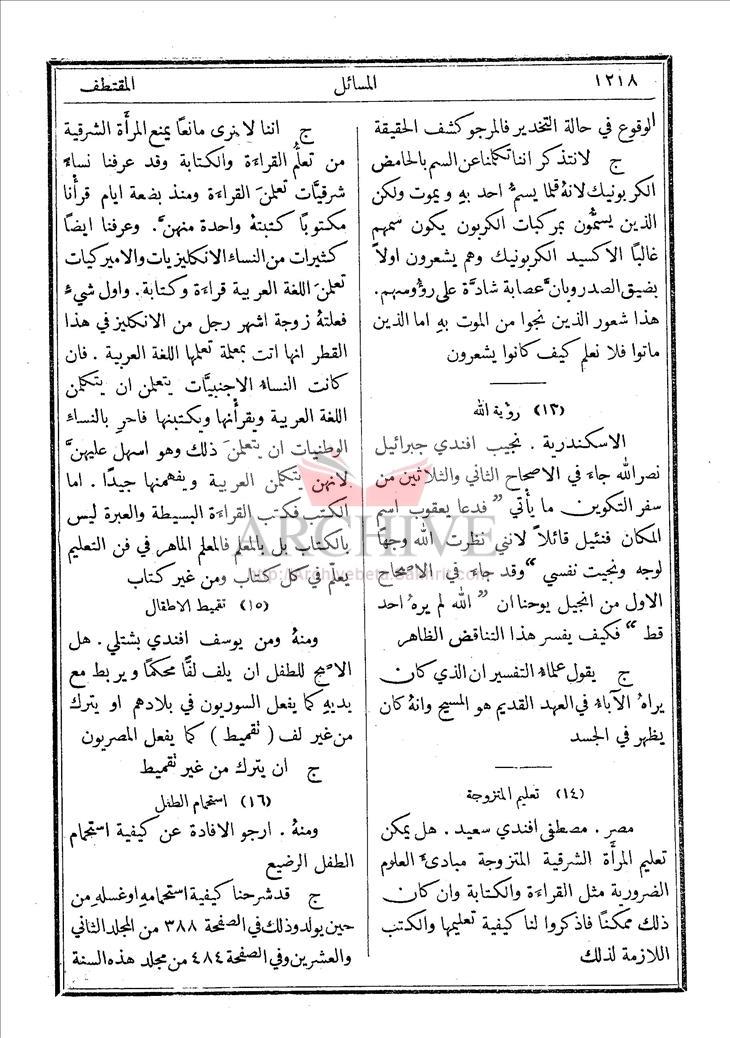 ١٢١٨ المسائل المقتطف
الوقوع في حالة التخدير فالمرجو كشف الحقيقة
ج لا نتذكر اننا تكلمنا عن السم بالحامض
الكربونيك لانهُ قلما يسمُّ احد به ويموت ولكن
الذين يسمُّون بمركبات الكربون يكون سمهم
غالبًا الاكسيد الكربونيك وهم يشعرون اولاً
بضيق الصدر وبانَّ عصابة شادَّة على رؤوسهم.
هذا شعور الذين نجوا من الموت به اما الذين
ماتوا فلا نعلم كيف كانوا يشعرون
(١٣) رؤية الله
الاسكندرية . نجيب افندي جبرائيل
نصر الله جاء في الاصحاح الثاني والثلاثين من
سفر التكوين ما يأتي " فدعا يعقوب اسم
المكان فنئيل قائلاً لانني نظرت الله وجهًا
لوجه ونجيت نفسي " وقد جاء في الاصحاح
الاول من انجيل يوحنا ان " الله لم يرهُ احد
قط " فكيف يفسر هذا التناقض الظاهر
ج يقول علماء التفسير ان الذي كان
يراهُ الآباء في العهد القديم هو المسيح وانهُ كان
يظهر في الجسد
(١٤) تعليم المتزوجة
مصر . مصطفى افندي سعيد . هل يمكن
تعليم المرأة الشرقية المتزوجة مبادئ العلوم
الضرورية مثل القراءة والكتابة وان كان
ذلك ممكنًا فاذكروا لنا كيفية تعليمها والكتب
اللازمة لذلك
ج اننا لا نرى مانعًا يمنع المرأة الشرقية
من تعلُّم القراءة والكتابة وقد عرفنا نساءً
شرقيَّات تعلمنَ القراءة ومنذ بضعة ايام قرأنا
مكتوبًا كتبتهُ واحدة منهنَّ. وعرفنا ايضًا
كثيرات من النساء الانكليزيات والاميركيات
تعلمنَ اللغة العربية قراءة وكتابة. واول شيءٍ
فعلتهُ زوجة اشهر رجل من الانكليز في هذا
القطر انها اتت بمعلمة تعلمها اللغة العربية . فان
كانت النساء الاجنبيَّات يتعلمن ان يتكلمن
اللغة العربية ويقرأنها ويكتبنها فاحرِ بالنساء
الوطنيات ان يتعلمنَ ذلك وهو اسهل عليهنَّ
لانهن يتكلمن العربية ويفهمنها جيدًا . اما
الكتب فكتب القراءة البسيطة والعبرة ليس
بالكتاب بل بالمعلم فالمعلم الماهر في فن التعليم
يعلّم في كل كتاب ومن غير كتاب
(١٥) تقميط الاطفال
ومنهُ ومن يوسف افندي بشتلي . هل
الاصح للطفل ان يلف لفًّا محكمًا ويربط مع
يديهِ كما يفعل السوريون في بلادهم او يترك
من غير لف ( تقميط ) كما يفعل المصريون
ج ان يترك من غير تقميط
(١٦) استحمام الطفل
ومنهُ . ارجو الافادة عن كيفية استحمام
الطفل الرضيع
ج قد شرحنا كيفية استحمامهِ او غسلهِ من
حين يولد وذلك في الصفحة ٣٨٨ من المجلد الثاني
والعشرين وفي الصفحة ٤٨٤ من مجلد هذه السنة
ARCHIVE